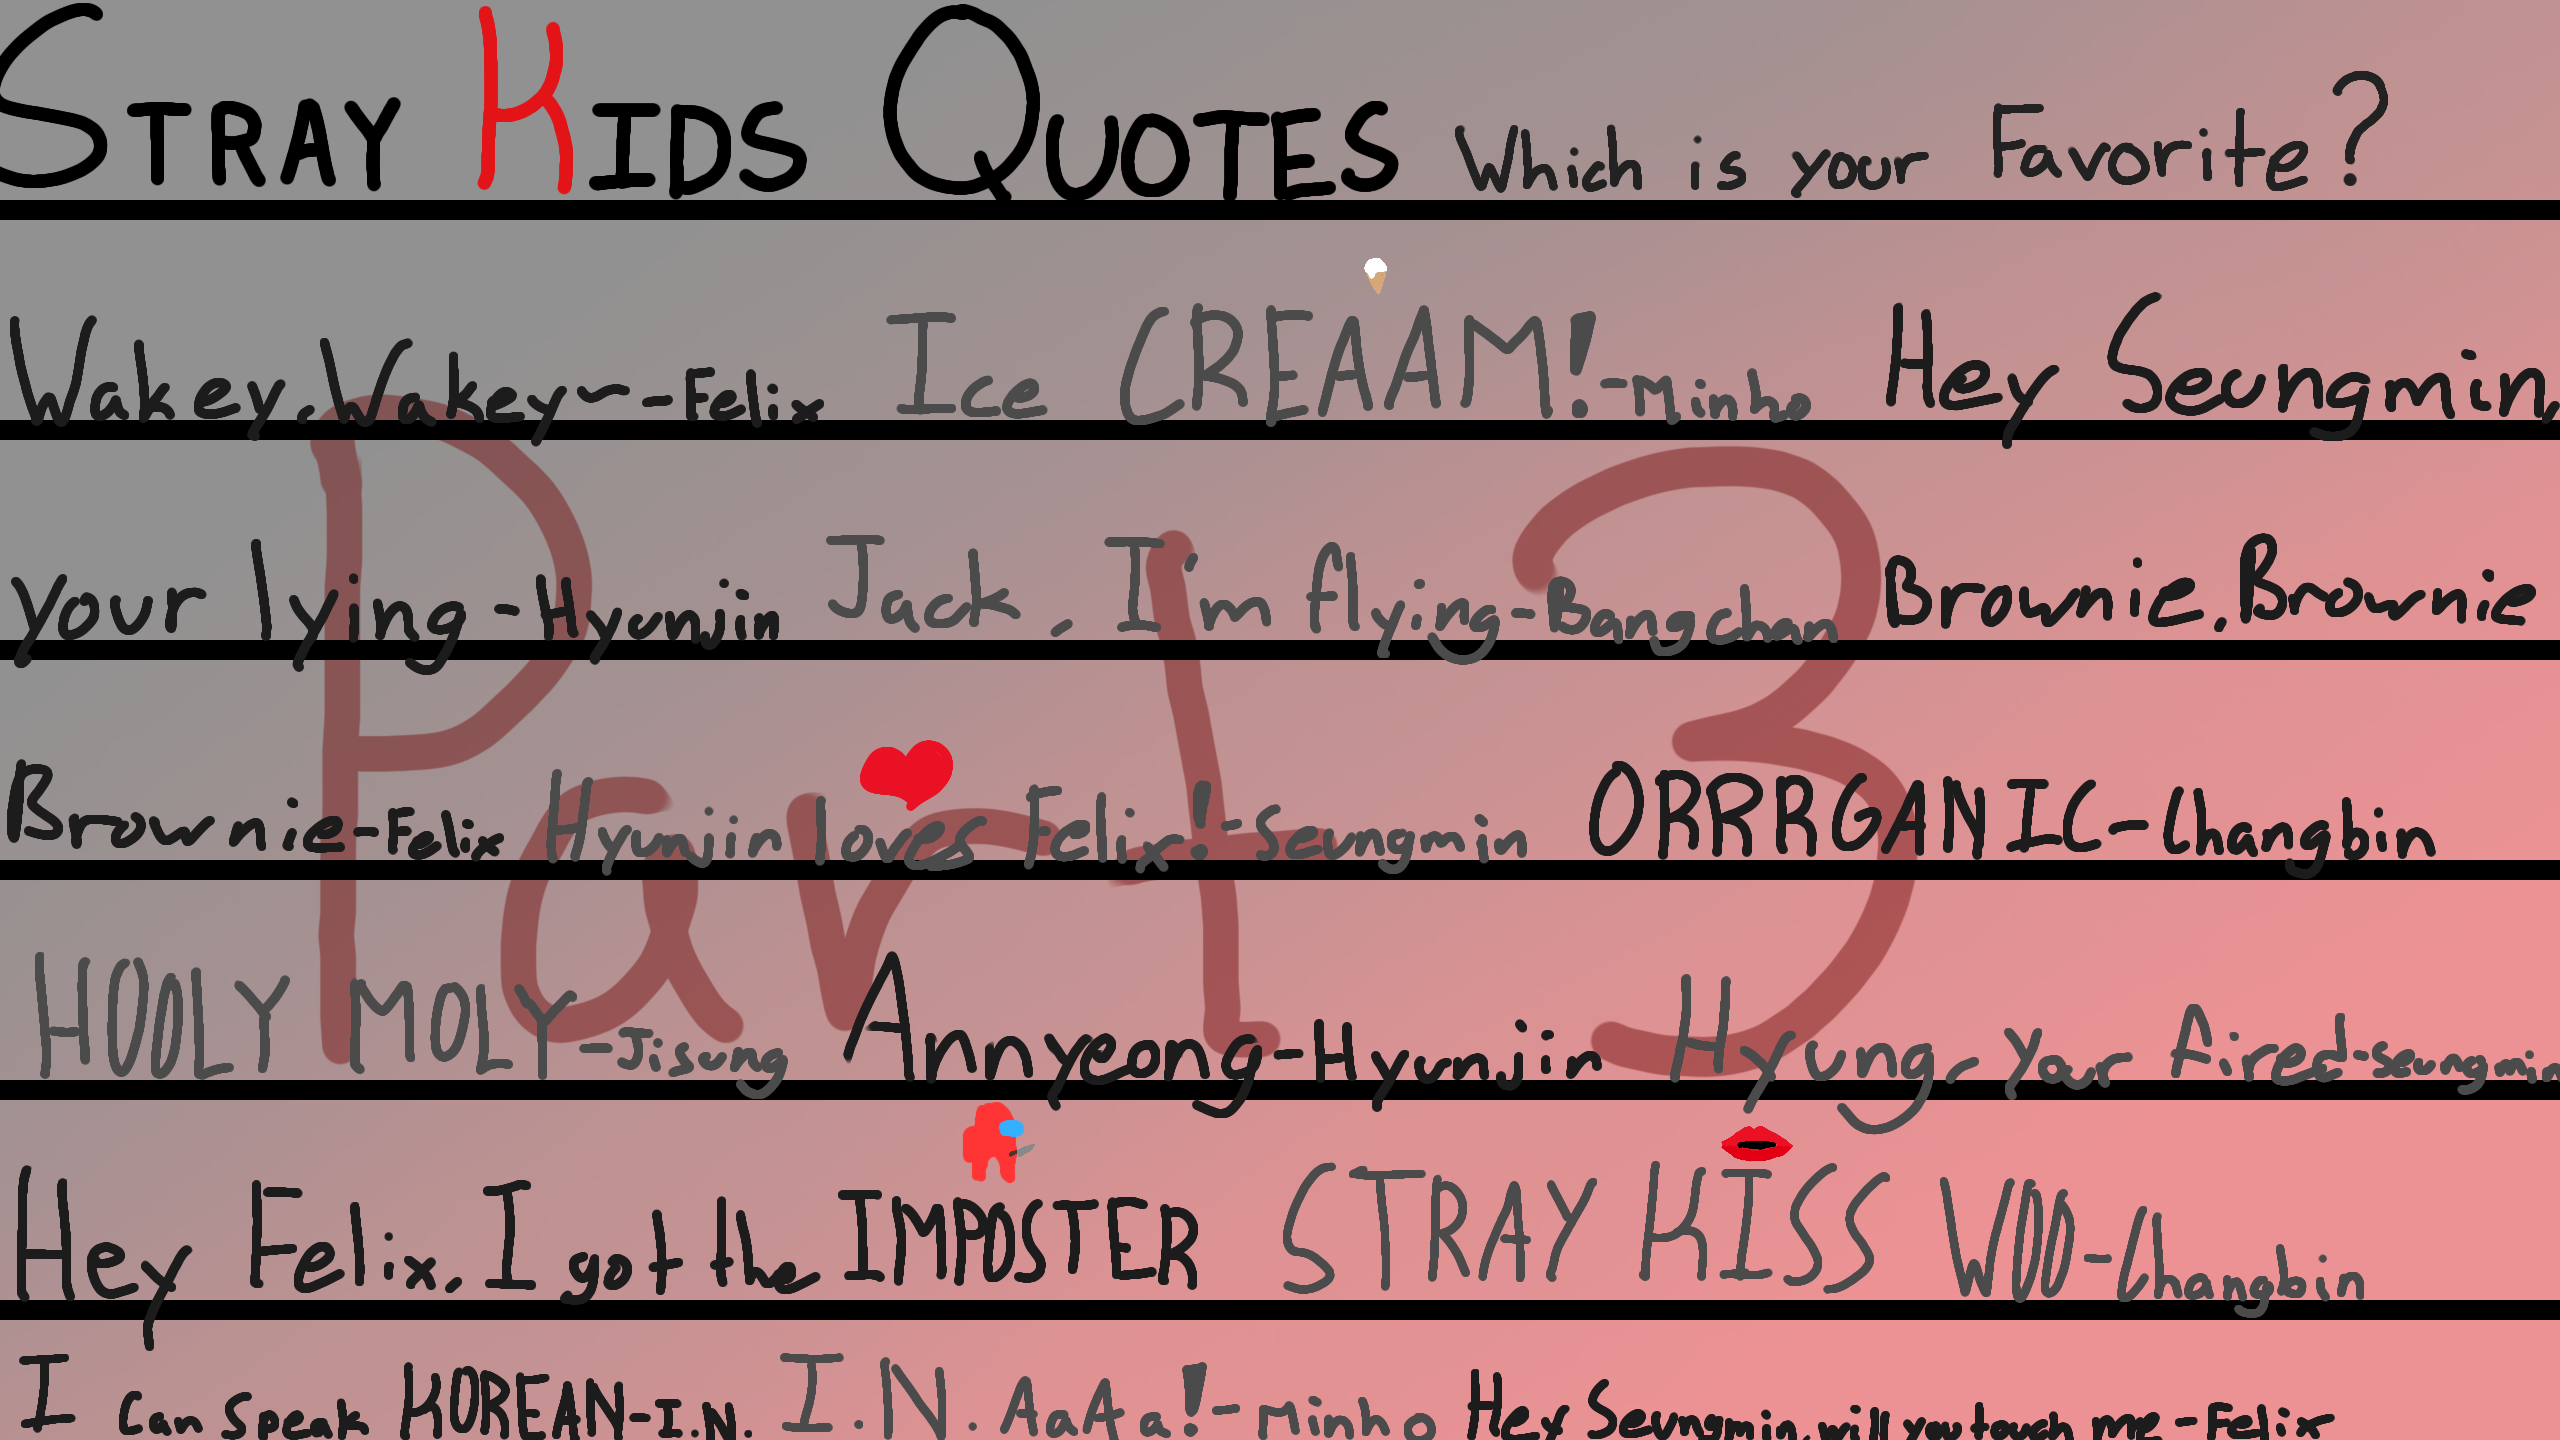 STRAY KIDS QUOTES Which is your Favorite?
Wakey, Wakey~ -Felix Ice CREAAM! -Minho Hey Seungmin,
your lying -Hyunjin Jack, I'm flying -Bangchan Brownie, Brownie
Brownie -Felix Hyunjin loves Felix! -Seungmin ORRRGANIC -Changbin
HOOLY MOLY -Jisung Annyeong -Hyunjin Hyung, your fired -Seungmin
Hey Felix, I got the IMPOSTER STRAY KISS WOO -Changbin
I can speak KOREAN -I.N. I.N. AaAa! -Minho Hey Seungmin, will you touch me -Felix
Part 3